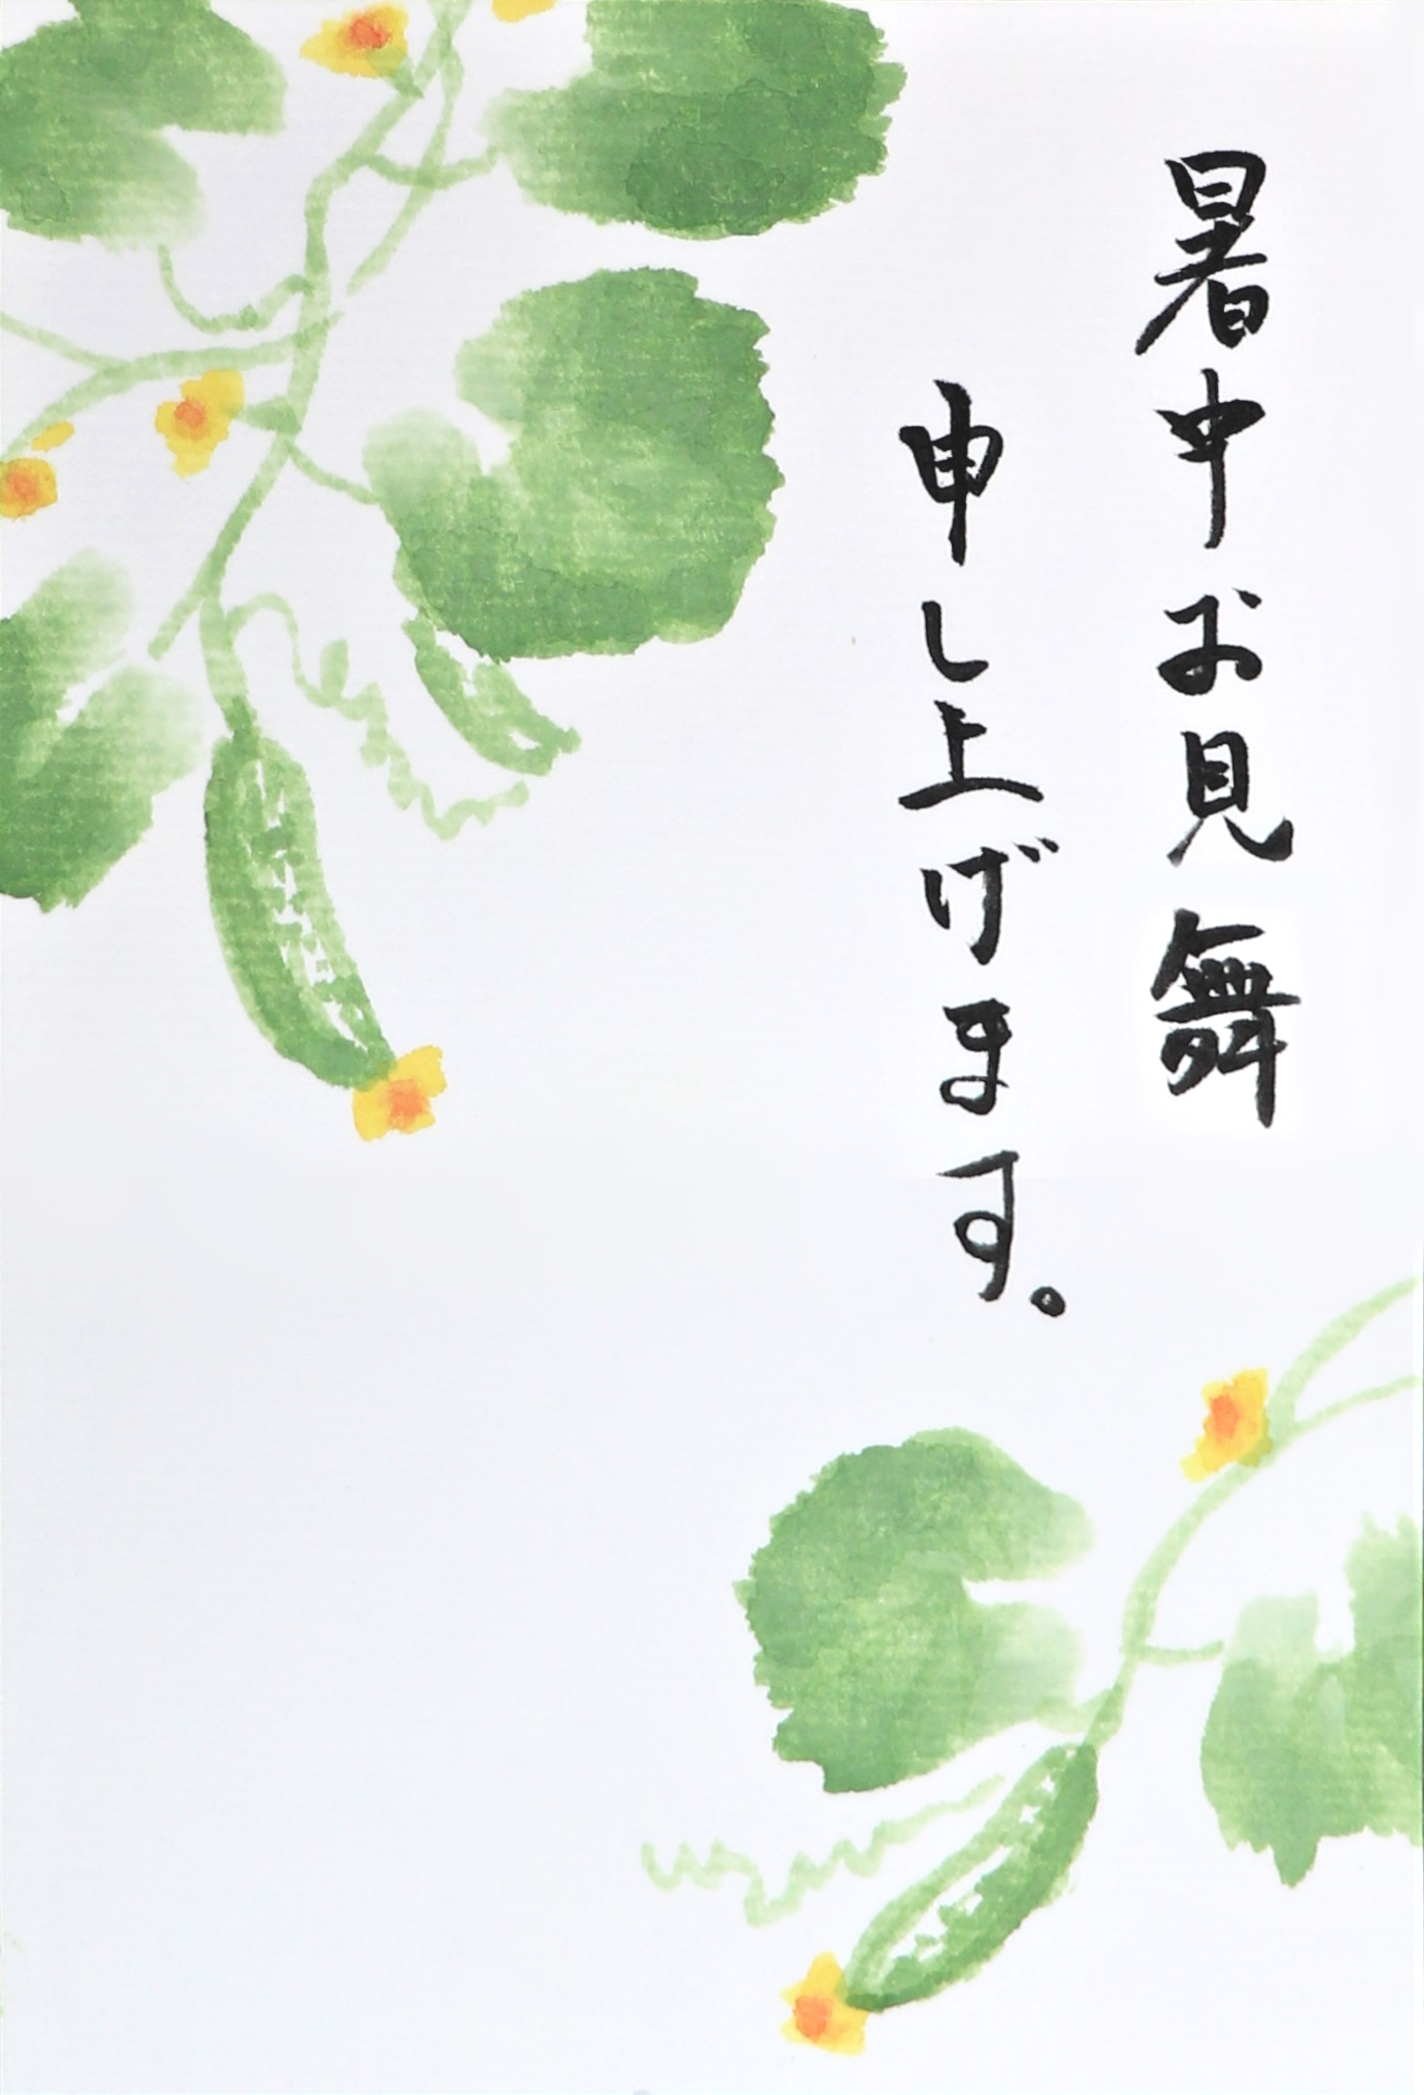 暑中お見舞
申し上げます。